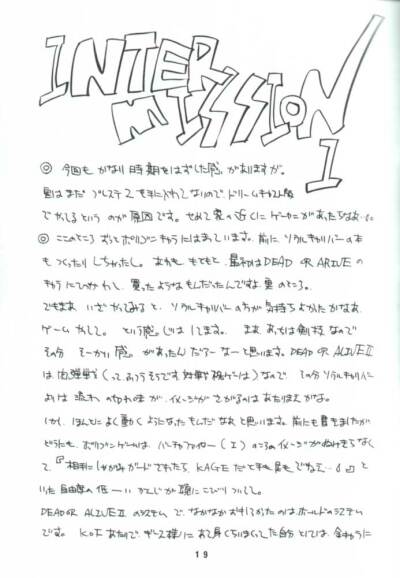 INTER
MISSION
1
◎ 今回も かなり 時期をはずした感が ありますが。
実はまだ プレステ2を手に入れてないので、ドリームキャスト版
でかしているというのが 原因です。せめて家の近くに ゲーセンがあったらなあ…
◎ ここのところ ずっとポリゴンキャラにはまっています。前に ソウルキャリバーの本
もつくったり しちゃったし。 もともと 最初はDEAD OR ALIVEの
キャラにひかれて、買ったようなもんだったんですよ 実のところ。
でもまあ いざやってみると、ソウルキャリバーの方が 気持ちよかったかなあ。
ゲームとして。 という感じはしてます。 まあ あっちは剣技なので
その分 そーかい感 があったんだろーなーと思います。DEAD OR ALIVE II
は 肉弾戦 なので、その分ソウルキャリバー
よりは 流れの イメージが さがるのは あたりまえかな。
しかし、ほんとに よく動くようになったもんだなあ と思います。前にも書きましたが
どうにも、ポリゴンゲームは バーチャファイター(I)のころのイメージがぬけきらなく
て 『相手にしゃがみガードされたら、KAGEだと手も足もでねェ…』と
いった 自由度の低ーい かんじが 頭に こびりついてて。
DEAD OR ALIVE II のシステムで、なかなかお気に入りなのはホールドのシステム
です。 KOF あたりで ギース様に あて身くらいまくってた自分としては
19